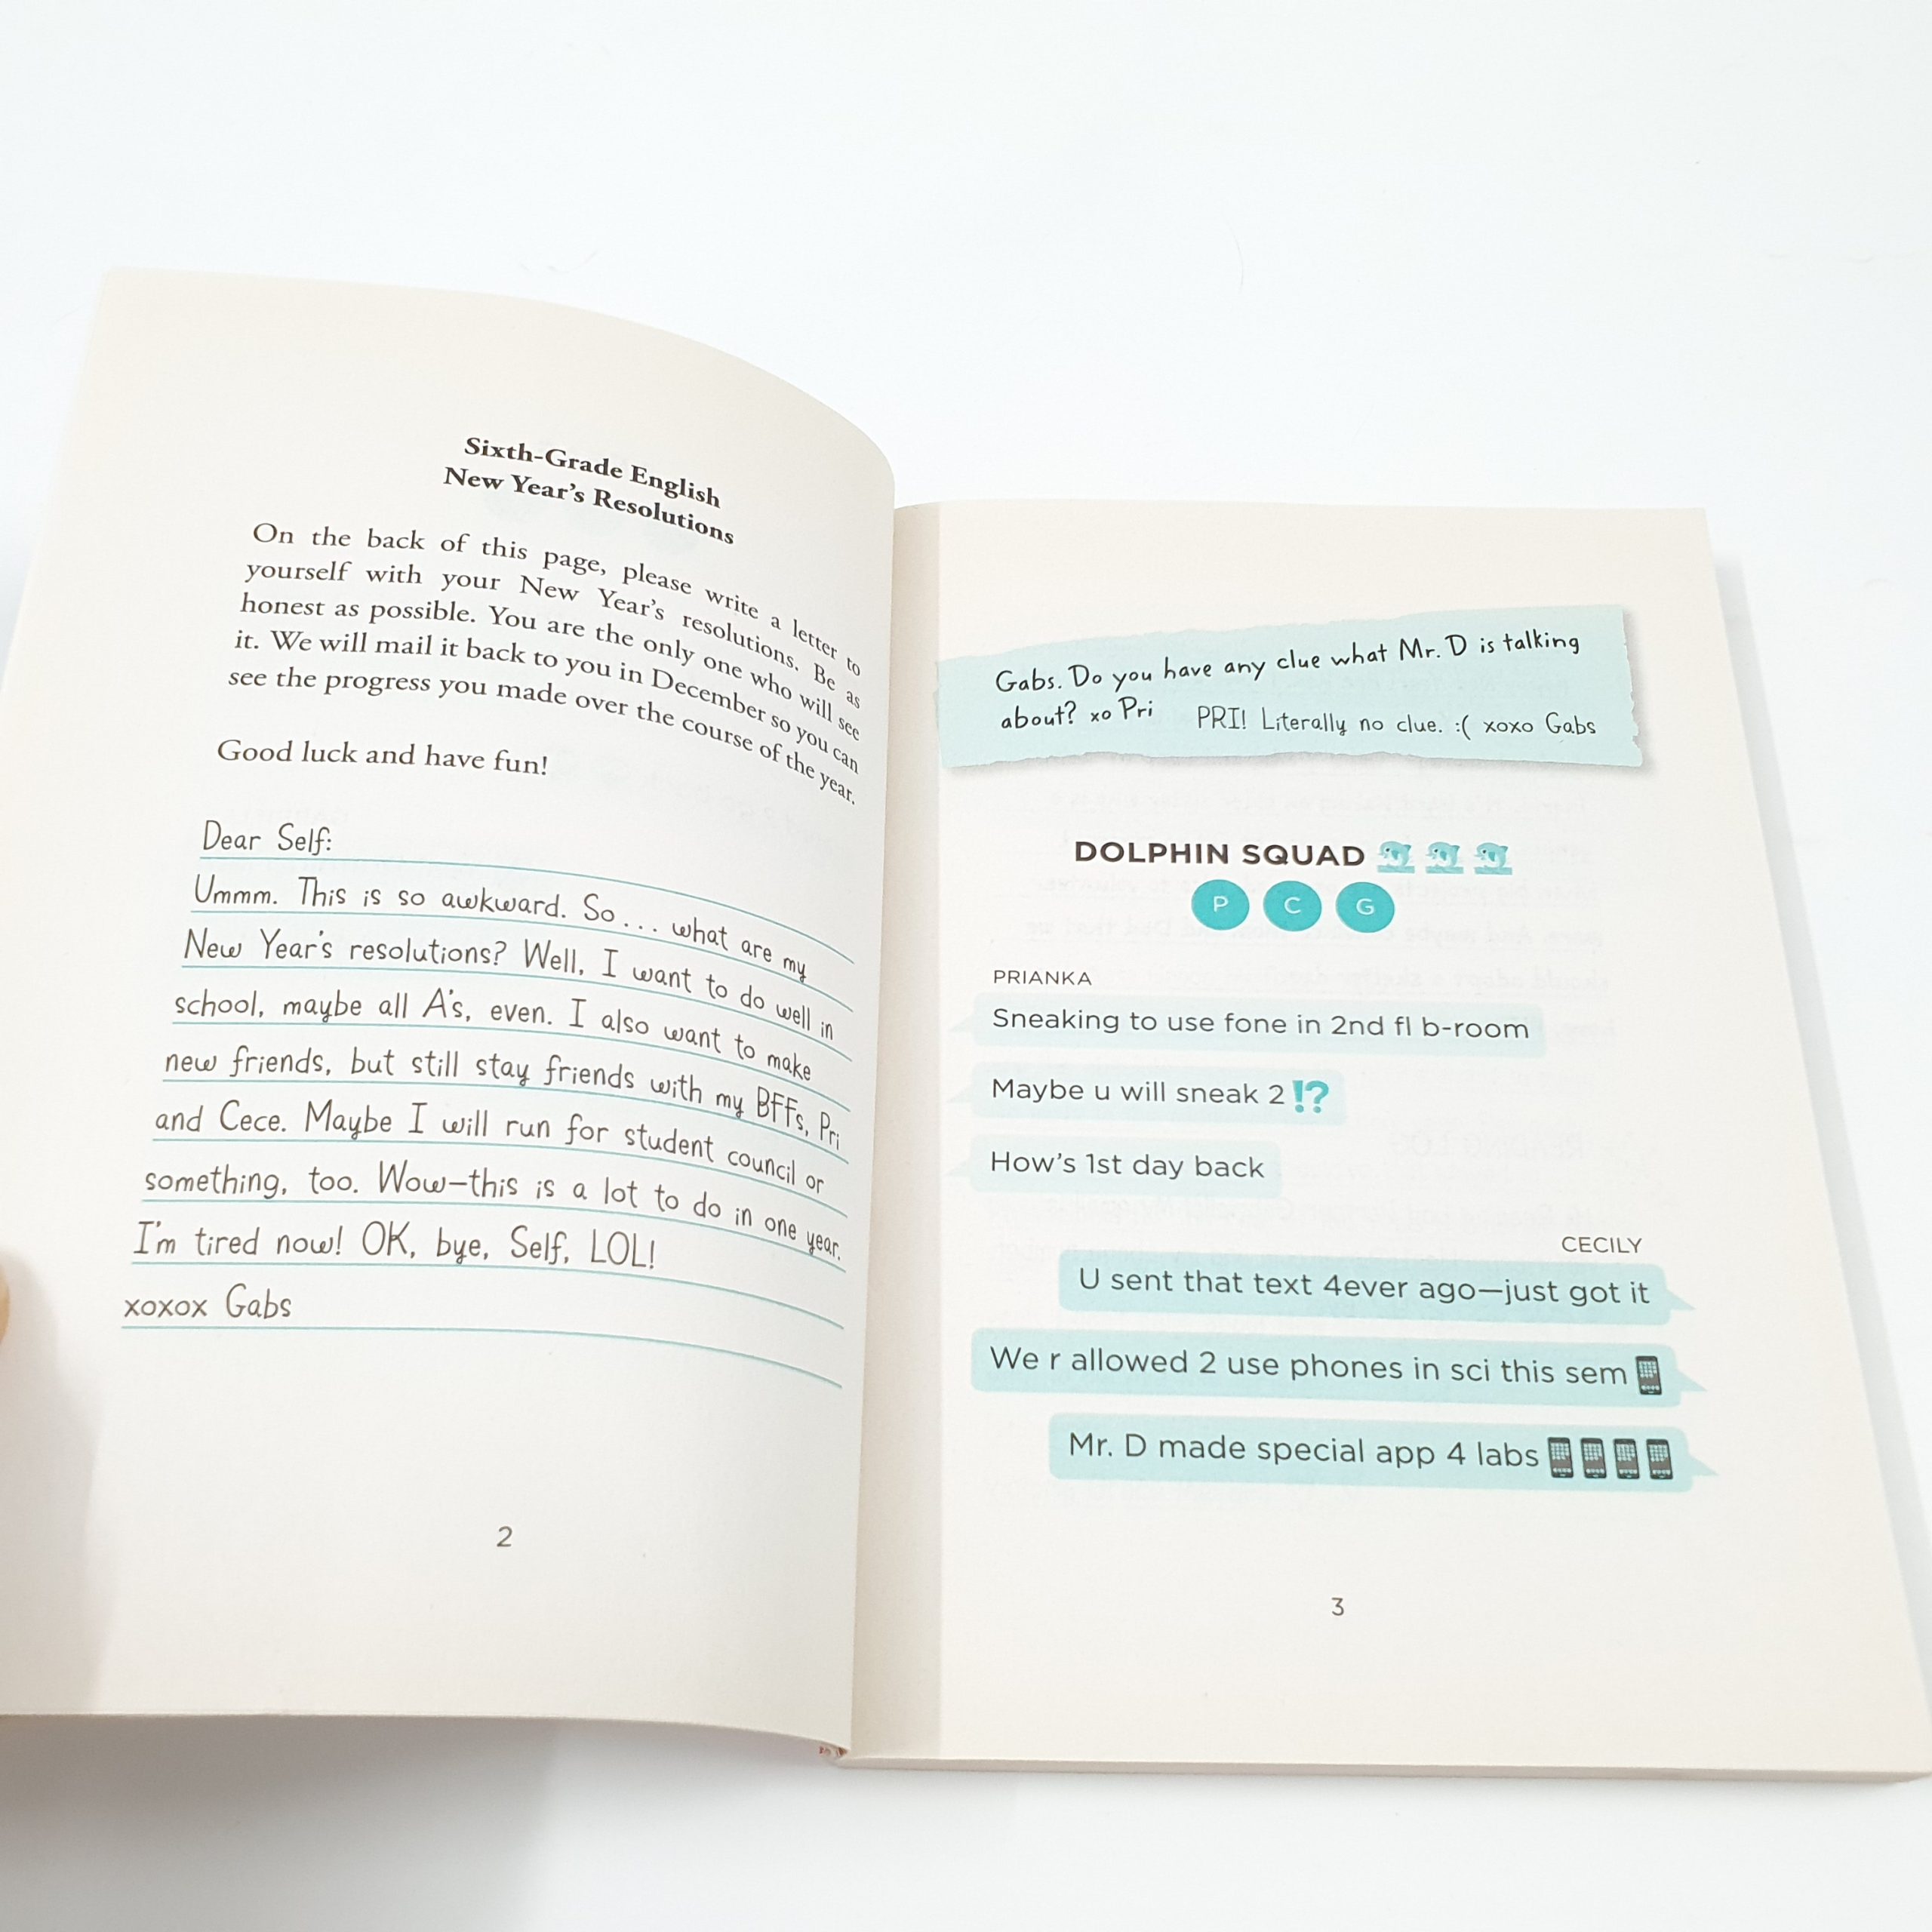 Sixth-Grade English
New Year's Resolutions
On the back of this page, please write a letter to
yourself with your New Year's resolutions. Be as
honest as possible. You are the only one who will see
it. We will mail it back to you in December so you can
see the progress you made over the course of the year.
Good luck and have fun!
Dear Self:
Ummm. This is so awkward. So... what are my
New Year's resolutions? Well, I want to do well in
school, maybe all A's, even. I also want to make
new friends, but still stay friends with my BFFs, Pri
and Cece. Maybe I will run for student council or
something, too. Wow—this is a lot to do in one year.
I'm tired now! OK, bye, Self, LOL!
xoxox Gabs
2
Gabs. Do you have any clue what Mr. D is talking
about? xo Pri PRI! Literally no clue. :( xoxo Gabs
DOLPHIN SQUAD 🐬🐬🐬
P C G
PRIANKA
Sneaking to use fone in 2nd fl b-room
Maybe u will sneak 2 ⁉
How's 1st day back
CECILY
U sent that text 4ever ago—just got it
We r allowed 2 use phones in sci this sem 📱
Mr. D made special app 4 labs 📱📱📱📱
3